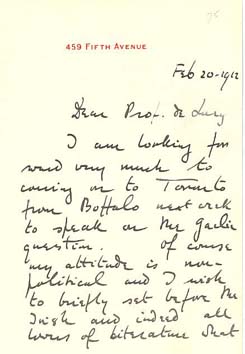 459 FIFTH AVENUE
Feb 20-1912
Dear Prof. de Lury
I am looking for
ward very much to
coming on to Toronto
from Boffalo next week
to speak on the Gaelic
question. Of course
my attitude is non-
political and I wish
to briefly set before the
Irish and indeed all
lovers of literature what